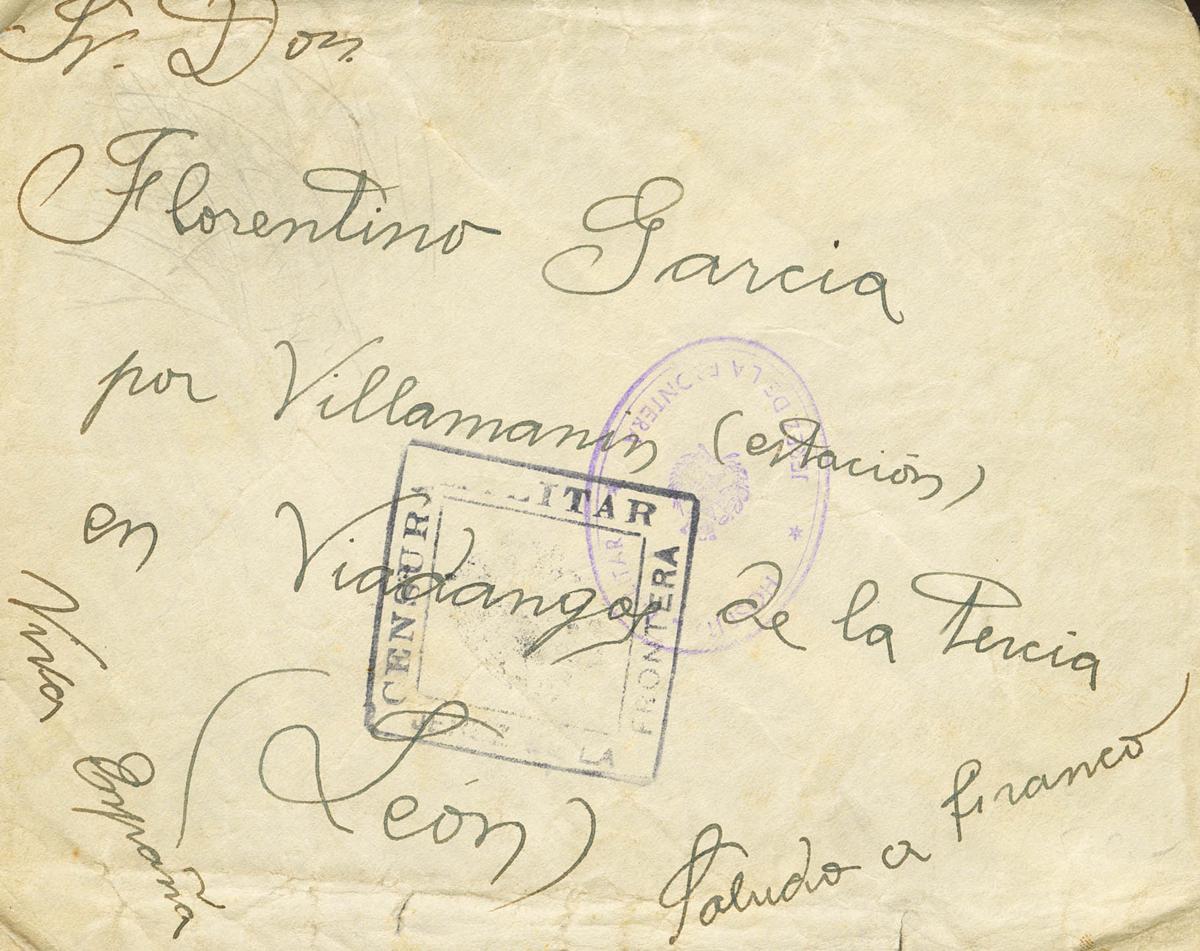 Sr. Don
Florentino Garcia
por Villamanin (estación)
en Viadangos de la Tercia
(León)
Viva España
Saludo a Franco
CENSURA MILITAR
JEREZ DE LA FRONTERA
JEREZ DE LA FRONTERA